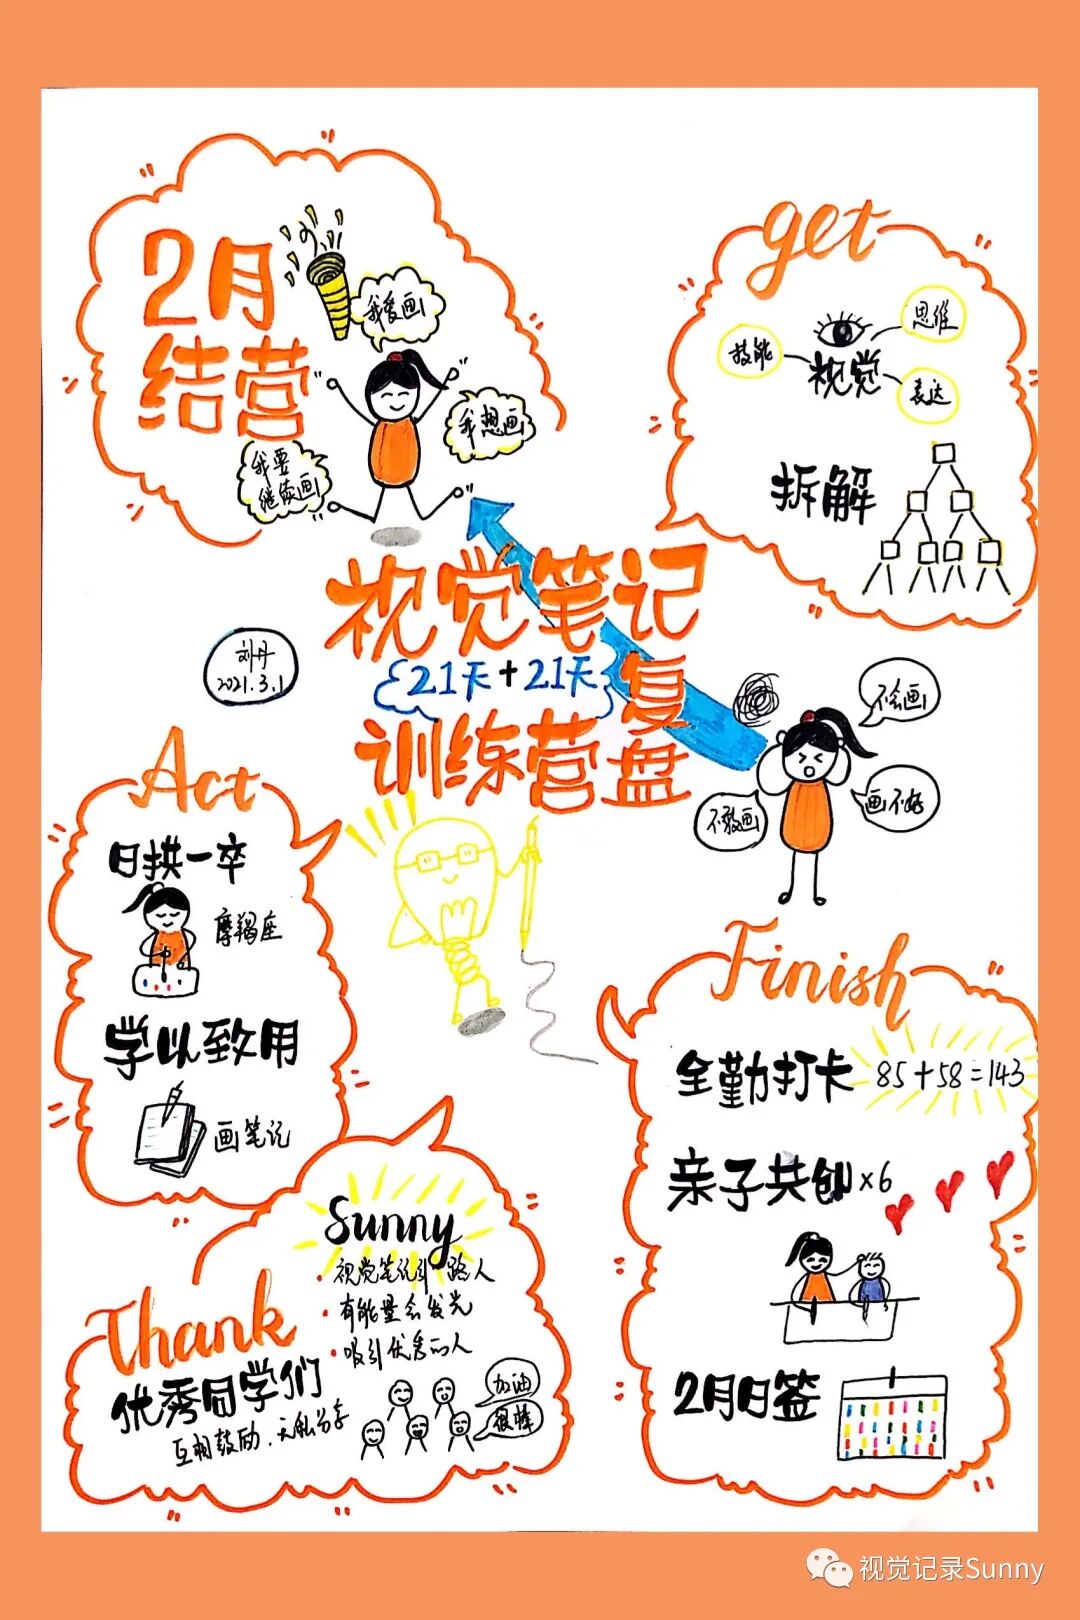 2月
结营
我爱画
我想画
我要
继续画
get
视觉
思维
技能
表达
拆解
视觉笔记
21天+21天
训练营
复盘
刘丹
2021.3.1
不会画
画不好
不敢画
Act
日拱一卒
摩羯座
学以致用
画笔记
Finish
全勤打卡 85+58=143
亲子共创 x6
2月日签
Thank
Sunny
·视觉笔记引路人
·有能量会发光
·吸引优秀的人
优秀同学们
互相鼓励、无私分享
加油
很棒
视觉记录Sunny